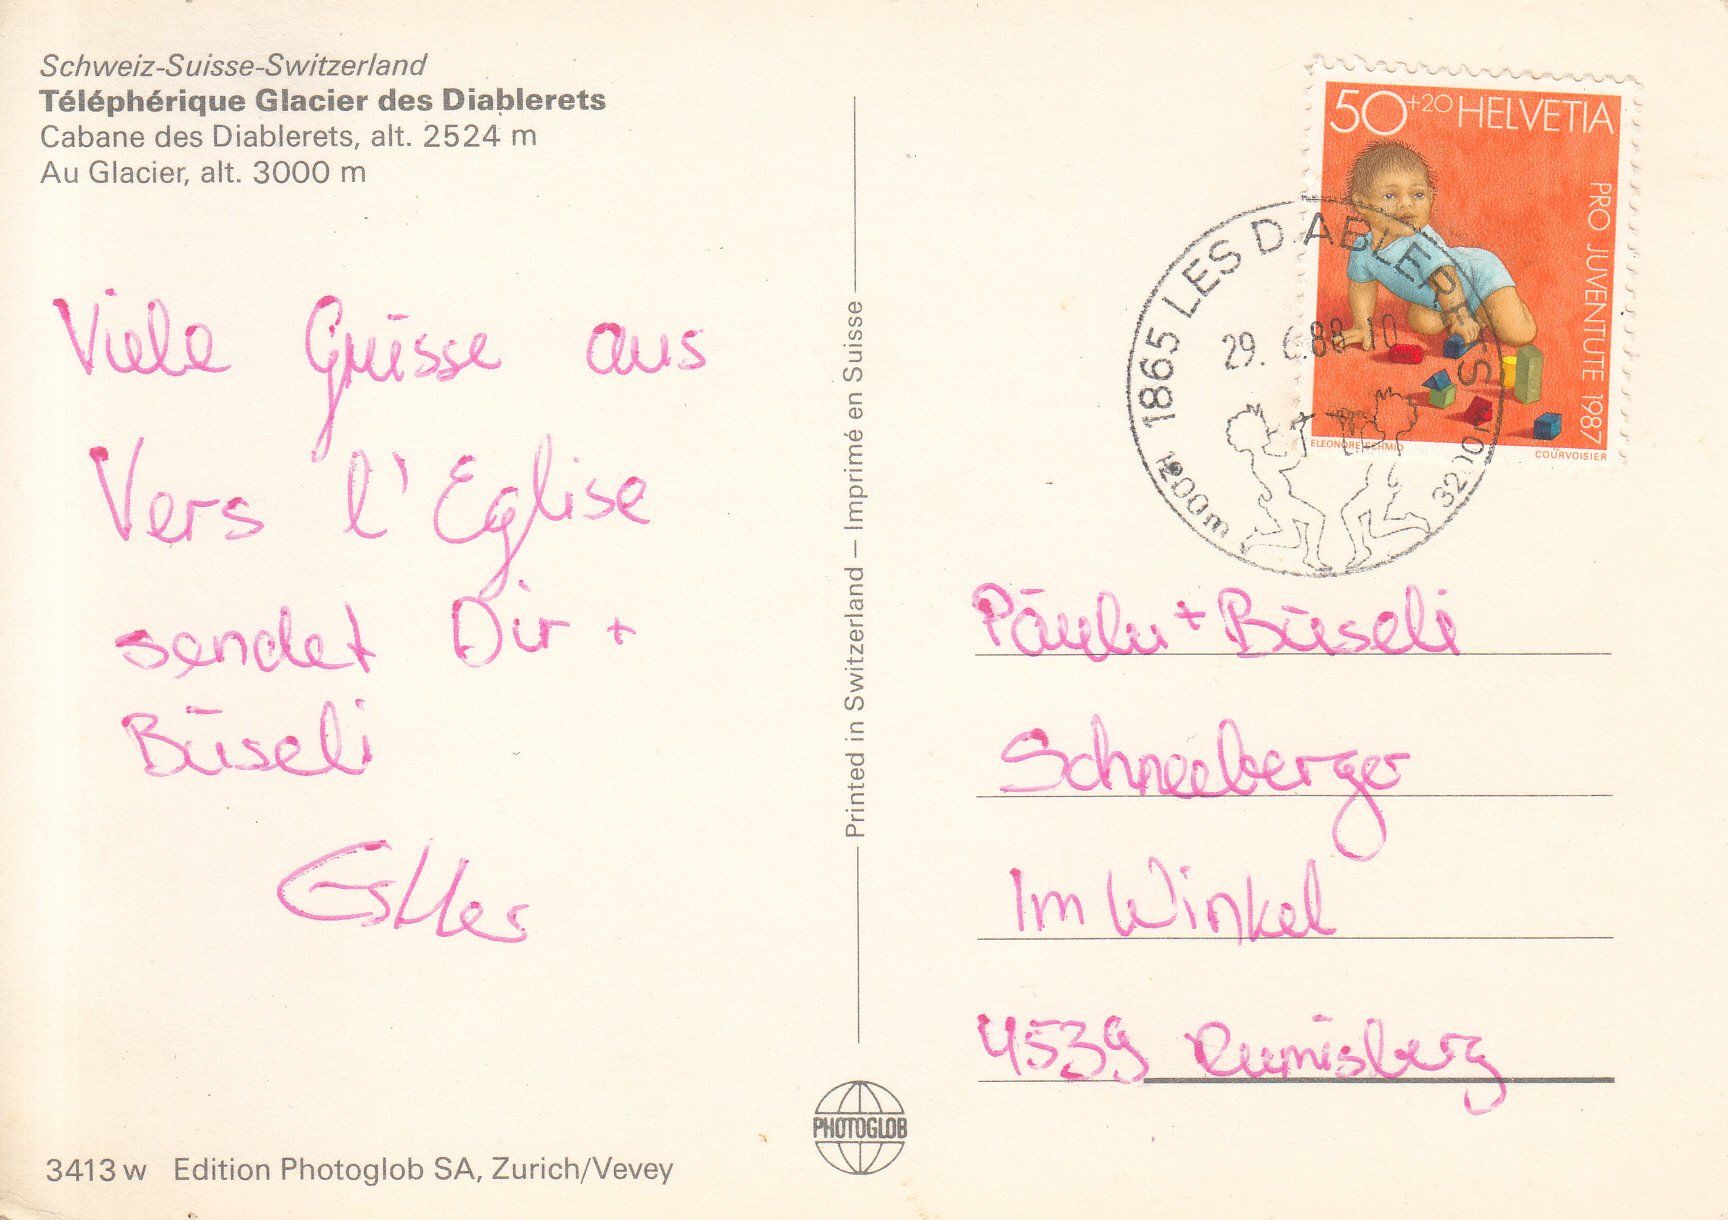 Schweiz-Suisse-Switzerland
Téléphérique Glacier des Diablerets
Cabane des Diablerets, alt. 2524 m
Au Glacier, alt. 3000 m
Viele Grüsse aus
Vers l'Eglise
sendet Dir +
Büseli
Esther
3413 w Edition Photoglob SA, Zurich/Vevey
Printed in Switzerland – Imprimé en Suisse
PHOTOGLOB
50+20 HELVETIA
PRO JUVENTUTE 1987
ELEONORE SCHMID
COURVOISIER
1865 LES DIABLERETS
29. 6.88 10
1200m 3200m
Päuly + Büseli
Schneeberger
Im Winkel
4539 Rumisberg